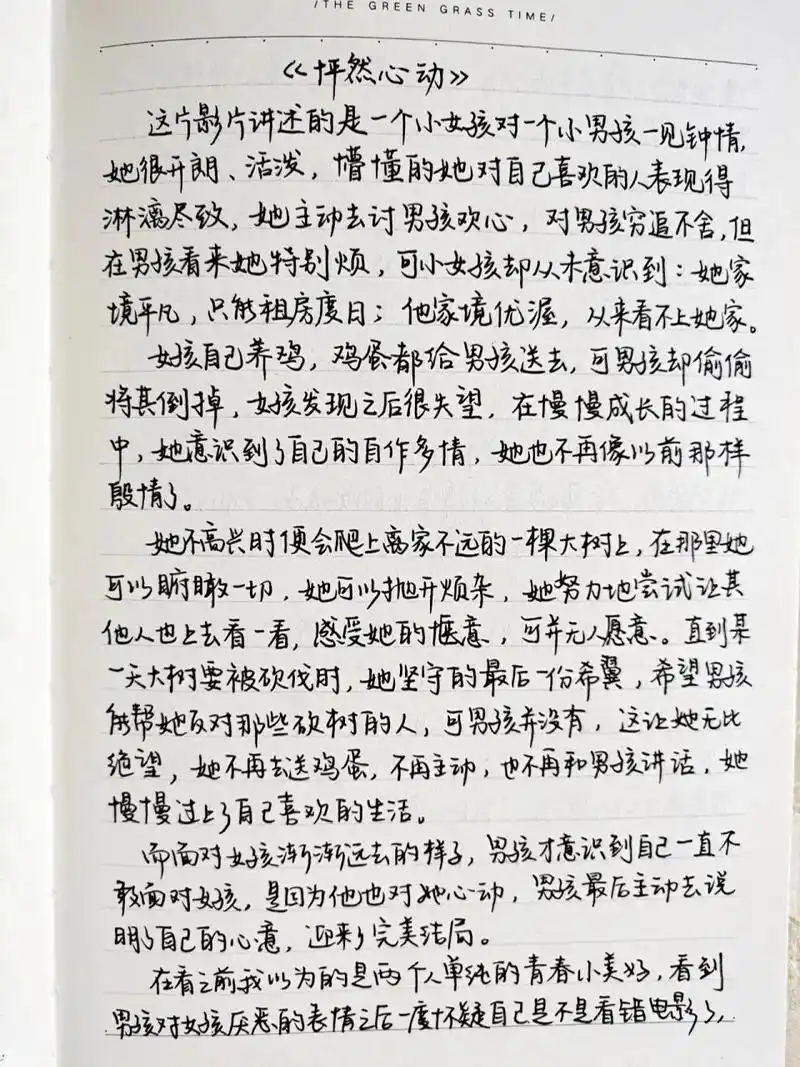 /THE GREEN GRASS TIME/
《怦然心动》
这片影片讲述的是一个小女孩对一个小男孩一见钟情,
她很开朗、活泼，懵懂的她对自己喜欢的人表现得
淋漓尽致，她主动去讨男孩欢心，对男孩穷追不舍,但
在男孩看来她特别烦，可小女孩却从未意识到：她家
境平凡，只能租房度日；他家境优渥，从来看不上她家。
女孩自己养鸡，鸡蛋都给男孩送去,可男孩却偷偷
将其倒掉，女孩发现之后很失望，在慢慢成长的过程
中，她意识到了自己的自作多情，她也不再像以前那样
殷情了。
她不高兴时便会爬上离家不远的一棵大树上，在那里她
可以瞰一切，她可以抛开烦杂，她努力地尝试让其
他人也上去看一看，感受她的惬意，可并无人愿意。直到某
一天大树要被砍伐时，她坚守的最后一份希翼，希望男孩
能帮她反对那些砍树的人，可男孩并没有，这让她无比
绝望，她不再去送鸡蛋,不再主动，也不再和男孩讲话，她
慢慢过上了自己喜欢的生活。
而面对女孩渐渐远去的样子，男孩才意识到自己一直不
敢面对女孩，是因为他也对她心动，男孩最后主动去说
明了自己的心意，迎来了完美结局。
在看之前我以为的是两个人单纯的青春小美好，看到
男孩对女孩厌恶的表情之后一度怀疑自己是不是看错电影了，